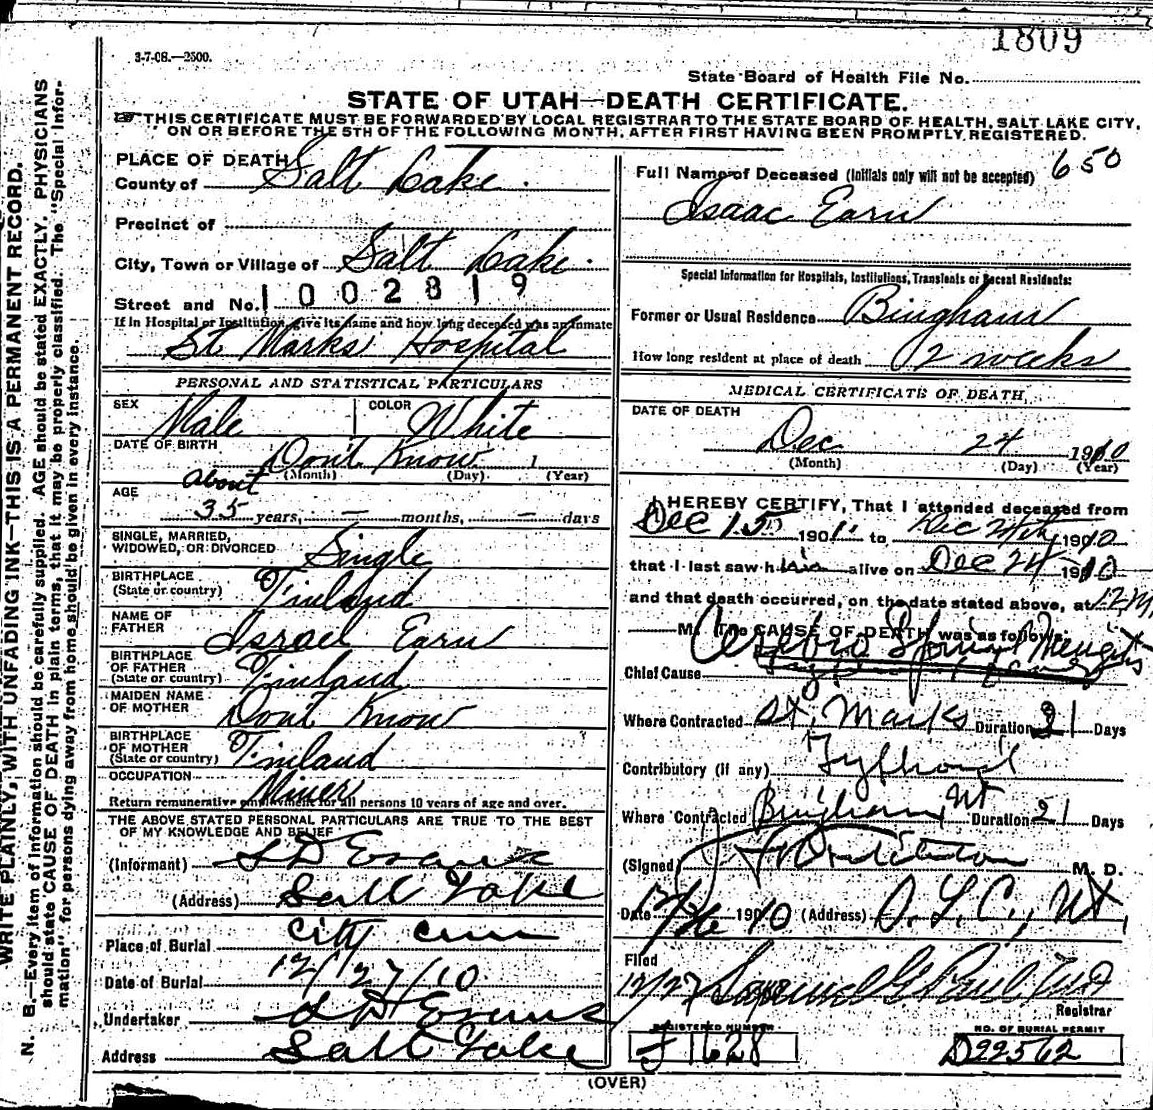 1809
3-7-08.—2500.
State Board of Health File No.
STATE OF UTAH—DEATH CERTIFICATE.
THIS CERTIFICATE MUST BE FORWARDED BY LOCAL REGISTRAR TO THE STATE BOARD OF HEALTH, SALT LAKE CITY,
ON OR BEFORE THE 5TH OF THE FOLLOWING MONTH, AFTER FIRST HAVING BEEN PROMPTLY REGISTERED.
WRITE PLAINLY, WITH UNFADING INK—THIS IS A PERMANENT RECORD.
N. B.—Every item of information should be carefully supplied. AGE should be stated EXACTLY. PHYSICIANS
should state CAUSE OF DEATH in plain terms, that it may be properly classified. The "Special Infor-
mation" for persons dying away from home should be given in every instance.
PLACE OF DEATH
County of Salt Lake.
Precinct of
City, Town or Village of Salt Lake.
Street and No. 1002819
If in Hospital or Institution, give its name and how long deceased was an inmate
St. Marks Hospital
PERSONAL AND STATISTICAL PARTICULARS
SEX Male COLOR White
DATE OF BIRTH Dont Know 1
(Month) (Day) (Year)
AGE about
35 years, — months, — days
SINGLE, MARRIED,
WIDOWED, OR DIVORCED Single
BIRTHPLACE
(State or country) Finland
NAME OF
FATHER Israel Earu
BIRTHPLACE
OF FATHER
(State or country) Finland
MAIDEN NAME
OF MOTHER Dont Know
BIRTHPLACE
OF MOTHER
(State or country) Finland
OCCUPATION Miner
Return remunerative employment for all persons 10 years of age and over.
THE ABOVE STATED PERSONAL PARTICULARS ARE TRUE TO THE BEST
OF MY KNOWLEDGE AND BELIEF
(Informant) S D Evans
(Address) Salt Lake
Place of Burial City Cem
Date of Burial 12/27/10
Undertaker S D Evans
Address Salt Lake
Full Name of Deceased (Initials only will not be accepted) 650
Isaac Earu
Special Information for Hospitals, Institutions, Transients or Recent Residents:
Former or Usual Residence Bingham
How long resident at place of death 2 weeks
MEDICAL CERTIFICATE OF DEATH,
DATE OF DEATH
Dec 24 1910
(Month) (Day) (Year)
I HEREBY CERTIFY, That I attended deceased from
Dec 15 190 to Dec 24th 1910
that I last saw him alive on Dec 24 1910
and that death occurred, on the date stated above, at 12 M
M. The CAUSE OF DEATH was as follows:
Cerebro Spinal Mengitis
Chief Cause
Where Contracted St. Marks Duration 21 Days
Contributory (if any) Typhoid
Where Contracted Bingham Ut Duration 21 Days
(Signed) M. D.
Date 12/26 1910 (Address) S. L. C., Ut,
Filed
12/27 Samuel G Paul MD
Registrar
REGISTERED NUMBER
J 1628
NO. OF BURIAL PERMIT
D22562
(OVER)